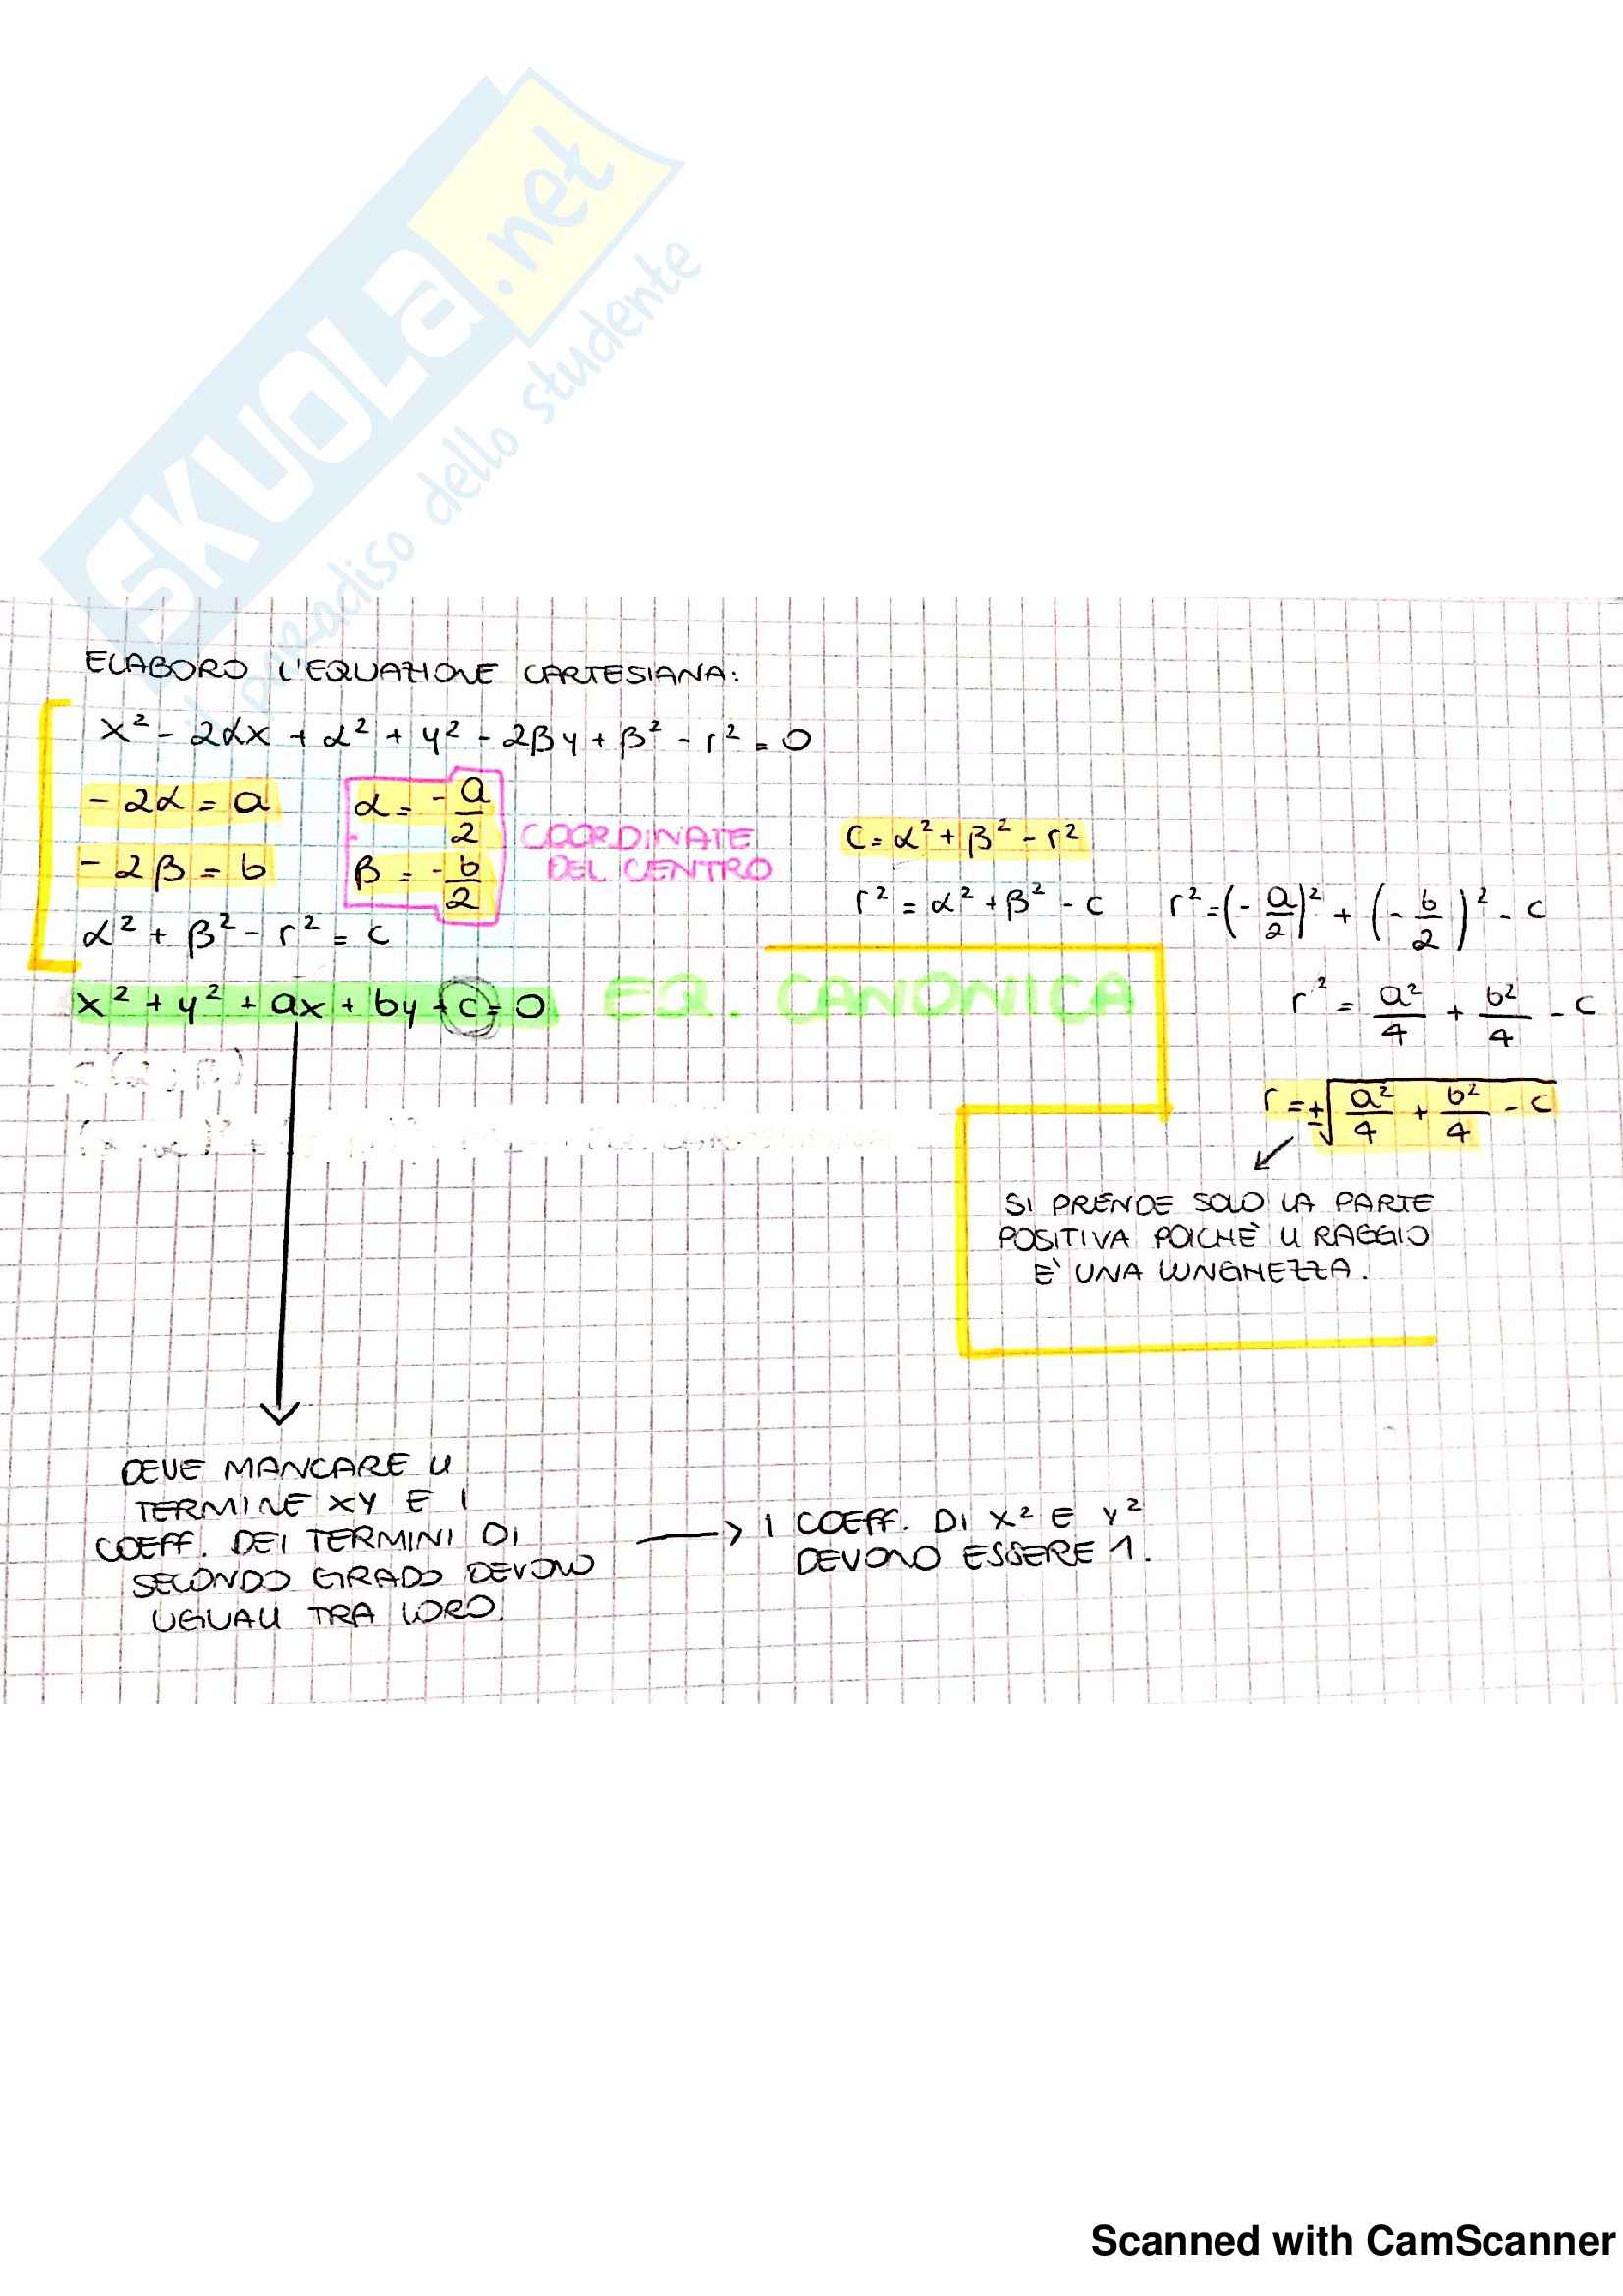 SKUOLA.net
il paradiso dello studente
ELABORO L'EQUAZIONE CARTESIANA:
x² - 2αx + α² + y² - 2βy + β² - r² = 0
-2α = a
α = -a/2
-2β = b
β = -b/2
COORDINATE
DEL CENTRO
α² + β² - r² = c
c = α² + β² - r²
r² = α² + β² - c
r² = (-a/2)² + (-b/2)² - c
r² = a²/4 + b²/4 - c
r = ±√(a²/4 + b²/4 - c)
x² + y² + ax + by + c = 0
EQ. CANONICA
SI PRENDE SOLO LA PARTE
POSITIVA POICHÈ IL RAGGIO
E' UNA LUNGHEZZA.
DEVE MANCARE IL
TERMINE XY E I
COEFF. DEI TERMINI DI
SECONDO GRADO DEVONO
UGUALI TRA LORO
I COEFF. DI X² E Y²
DEVONO ESSERE 1.
Scanned with CamScanner